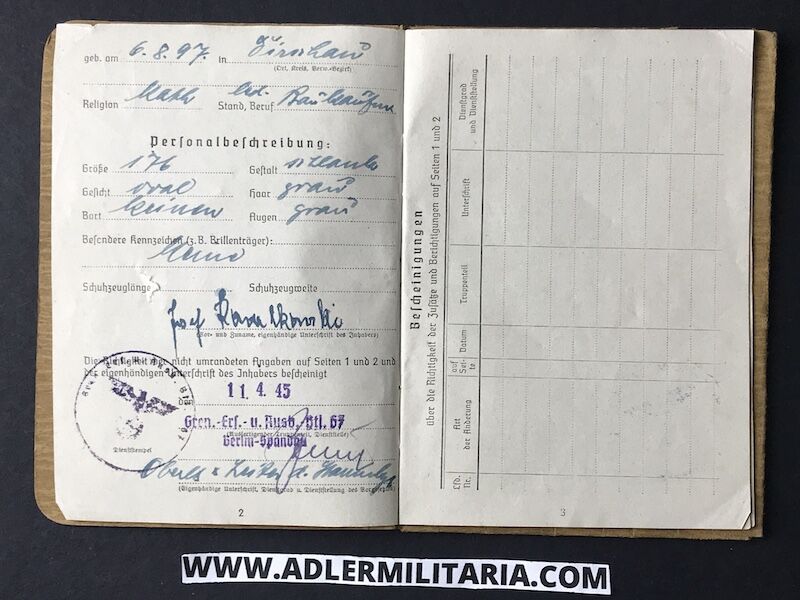 geb. am 6.8.97. in Dirschau
(Ort, Kreis, Verw.-Bezirk)
Religion Kath Stand, Beruf
Personalbeschreibung:
Größe 176 Gestalt schlank
Gesicht oval Haar grau
Bart keinen Augen grau
Besondere Kennzeichen (z.B. Brillenträger):
Keine
Schuhzeuglänge Schuhzeugweite
Josef
(Vor- und Zuname, eigenhändige Unterschrift des Inhabers)
Die Richtigkeit der nicht umrandeten Angaben auf Seiten 1 und 2 und
der eigenhändigen Unterschrift des Inhabers bescheinigt
11.4.45
Gren.-Ers.- u. Ausb.-Btl. 67
(Ausfertigender Truppenteil, Dienststelle)
Berlin-Spandau
Dienststempel
(Eigenhändige Unterschrift, Dienstgrad u. Dienststellung des Vorgesetzten)
2
Bescheinigungen
über die Richtigkeit der Zusätze und Berichtigungen auf Seiten 1 und 2
Lfd. Nr.
Art der Änderung
auf Seite
Datum
Truppenteil
Unterschrift
Dienstgrad und Dienststellung
3
WWW.ADLERMILITARIA.COM